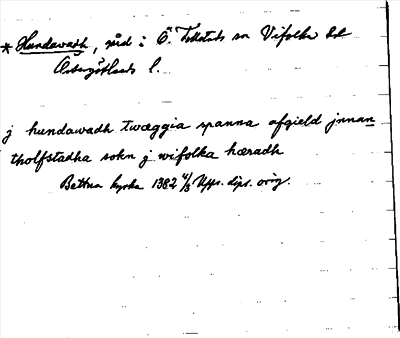 * Hundawadh, gård i Ö. Tollstads sn Vifolka hd
Östergötlands l.
j hundawadh twæggia spanna afgield jnnan
tholfstadha sokn j wifolka hæradh
Bettna kyrka 1382 4/3 Upps. dipl. orig.